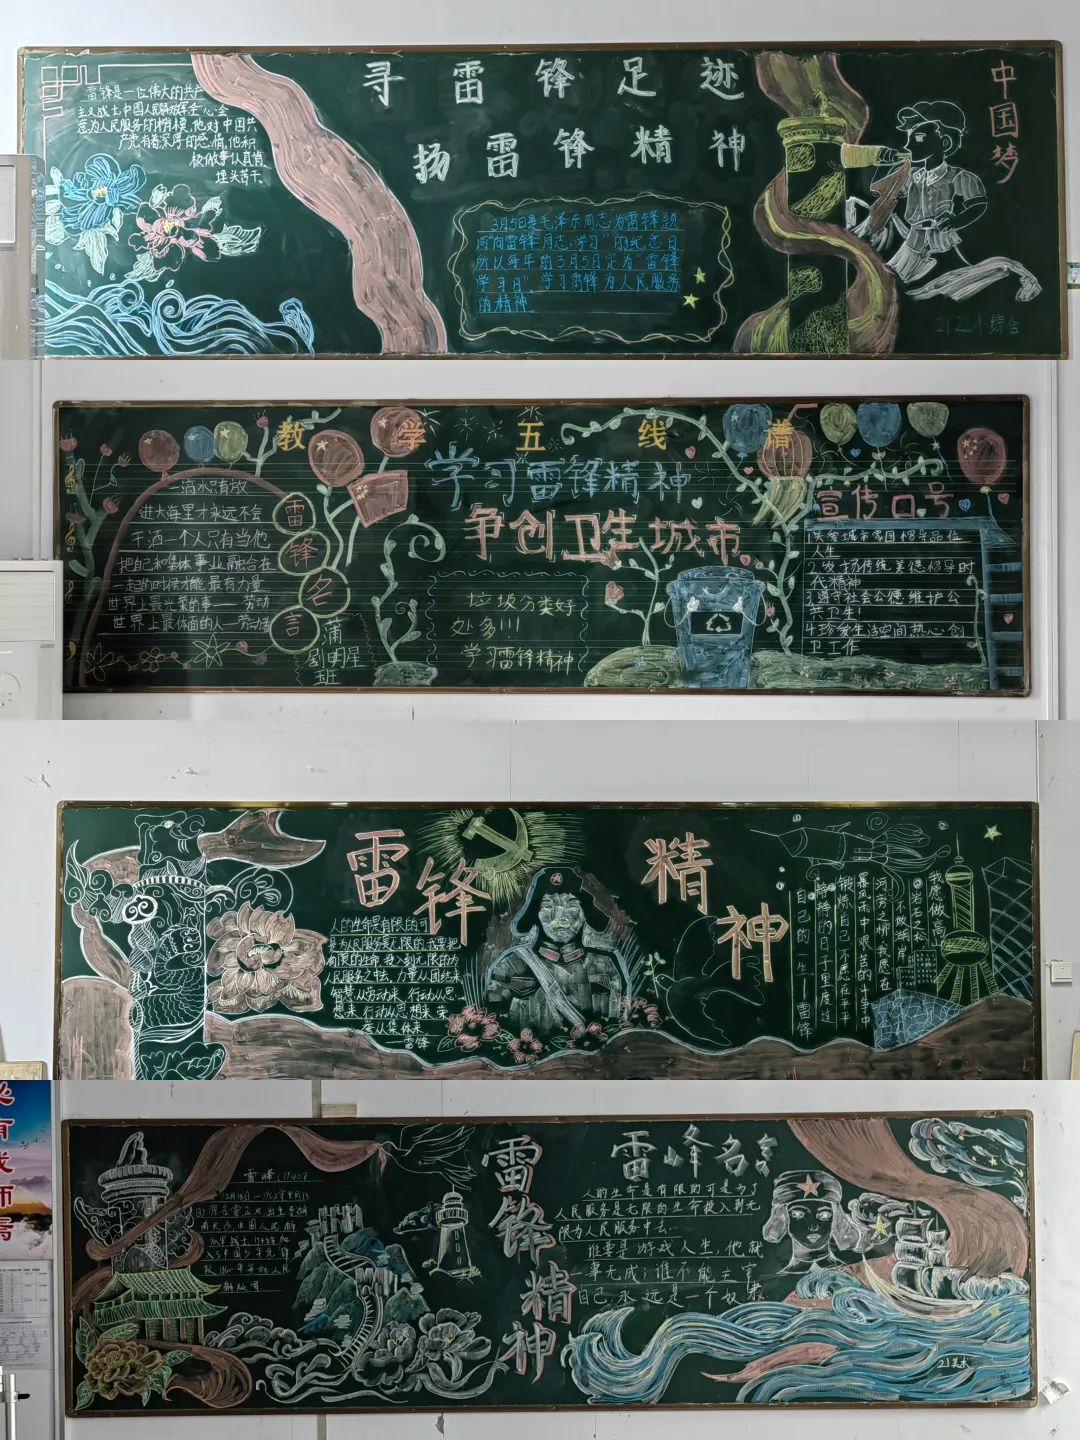 寻雷锋足迹
扬雷锋精神
中国梦
雷锋是一位伟大的共产
主义战士中国人民解放军全心全
意为人民服务的楷模,他对中国共
产党有着深厚的感情,他积
极做事认真肯
埋头苦干。
3月5日是毛泽东同志为雷锋题
词"向雷锋同志学习"的纪念日
所以每年的3月5日定为"雷锋
学习日"学习雷锋为人民服务
的精神。
综合
教学五线谱
学习雷锋精神
争创卫生城市
一滴水只有放
进大海里才永远不会
干洒一个人只有当他
把自和集体事业融合在
一起的时候才能最有力量
世界上最光荣的事——劳动
世界上最体面的人—劳动者
雷锋名言
蒲
剧明星
班
垃圾分类好
处多!!!
学习雷锋精神
宣传口号
1关爱城市家园倡导品位
人生
2发扬传统美德倡导时
代精神
3遵守社会公德维护公
共卫生
4珍爱生活空间热心创
卫工作
雷锋精神
人的生命是有限的可
是为人民服务是无限的我要把
有限的生命投入到无限的为
人民服务之中去,力量从团结来
智慧从劳动来 行动从思
想来 行动从思想来荣
誉从集体来
—雷锋
我愿做高
山岩石之松
不做湖岸
河旁之柳 我愿在
暴风雨中 艰苦的斗争中
锻炼自己不愿在平平
静静的日子里度过
自己的一生——雷锋
雷锋精神
雷锋(1940.
雷峰名言
人的生命是有限的可是为了
人民服务是无限的生命投入到无
限为人民服务中去.
谁要是游戏人生,他就
一事无成;谁不能主宰
自己.永远是一个奴隶
21美术